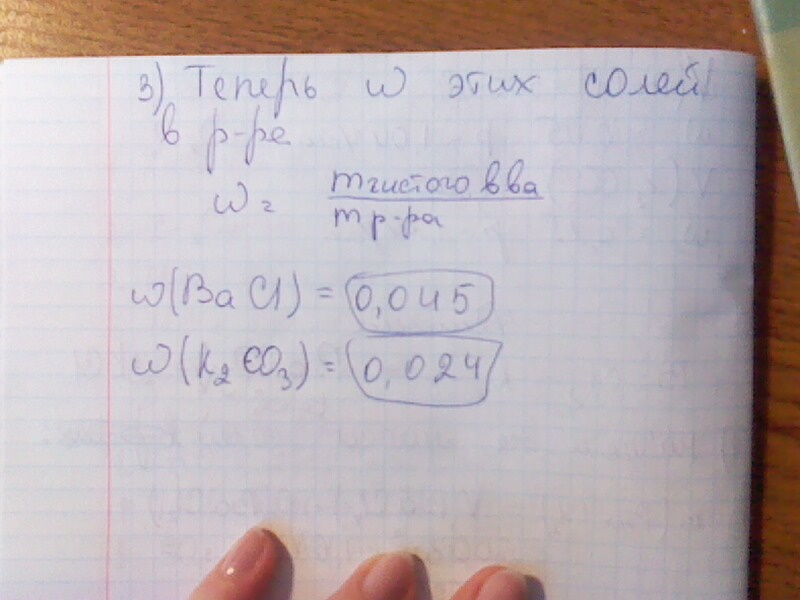 3) Теперь w этих солей
в р-ре
w = m чистого в ва / m р-ра
w(BaCl) = 0,045
w(K₂CO₃) = 0,024